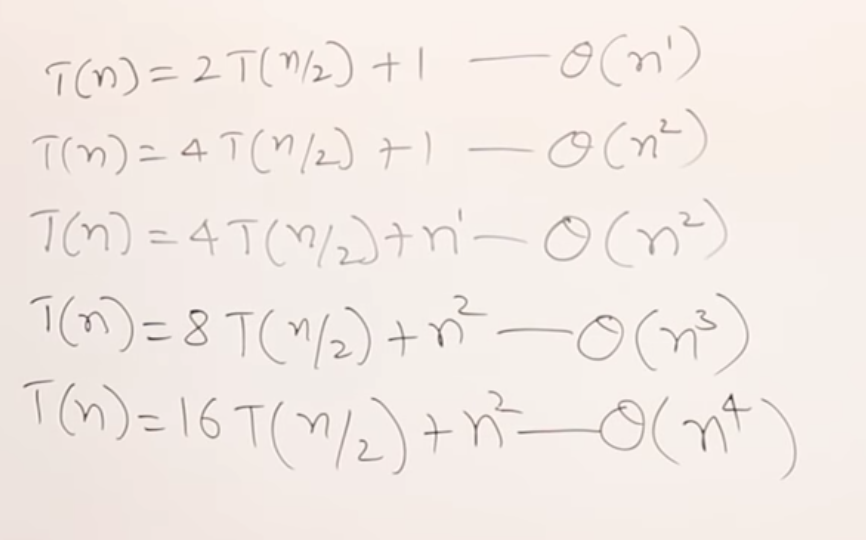 T(n) = 2T(n/2) + 1 — O(n¹)
T(n) = 4T(n/2) + 1 — O(n²)
T(n) = 4T(n/2) + n¹ — O(n²)
T(n) = 8T(n/2) + n² — O(n³)
T(n) = 16T(n/2) + n² — O(n⁴)